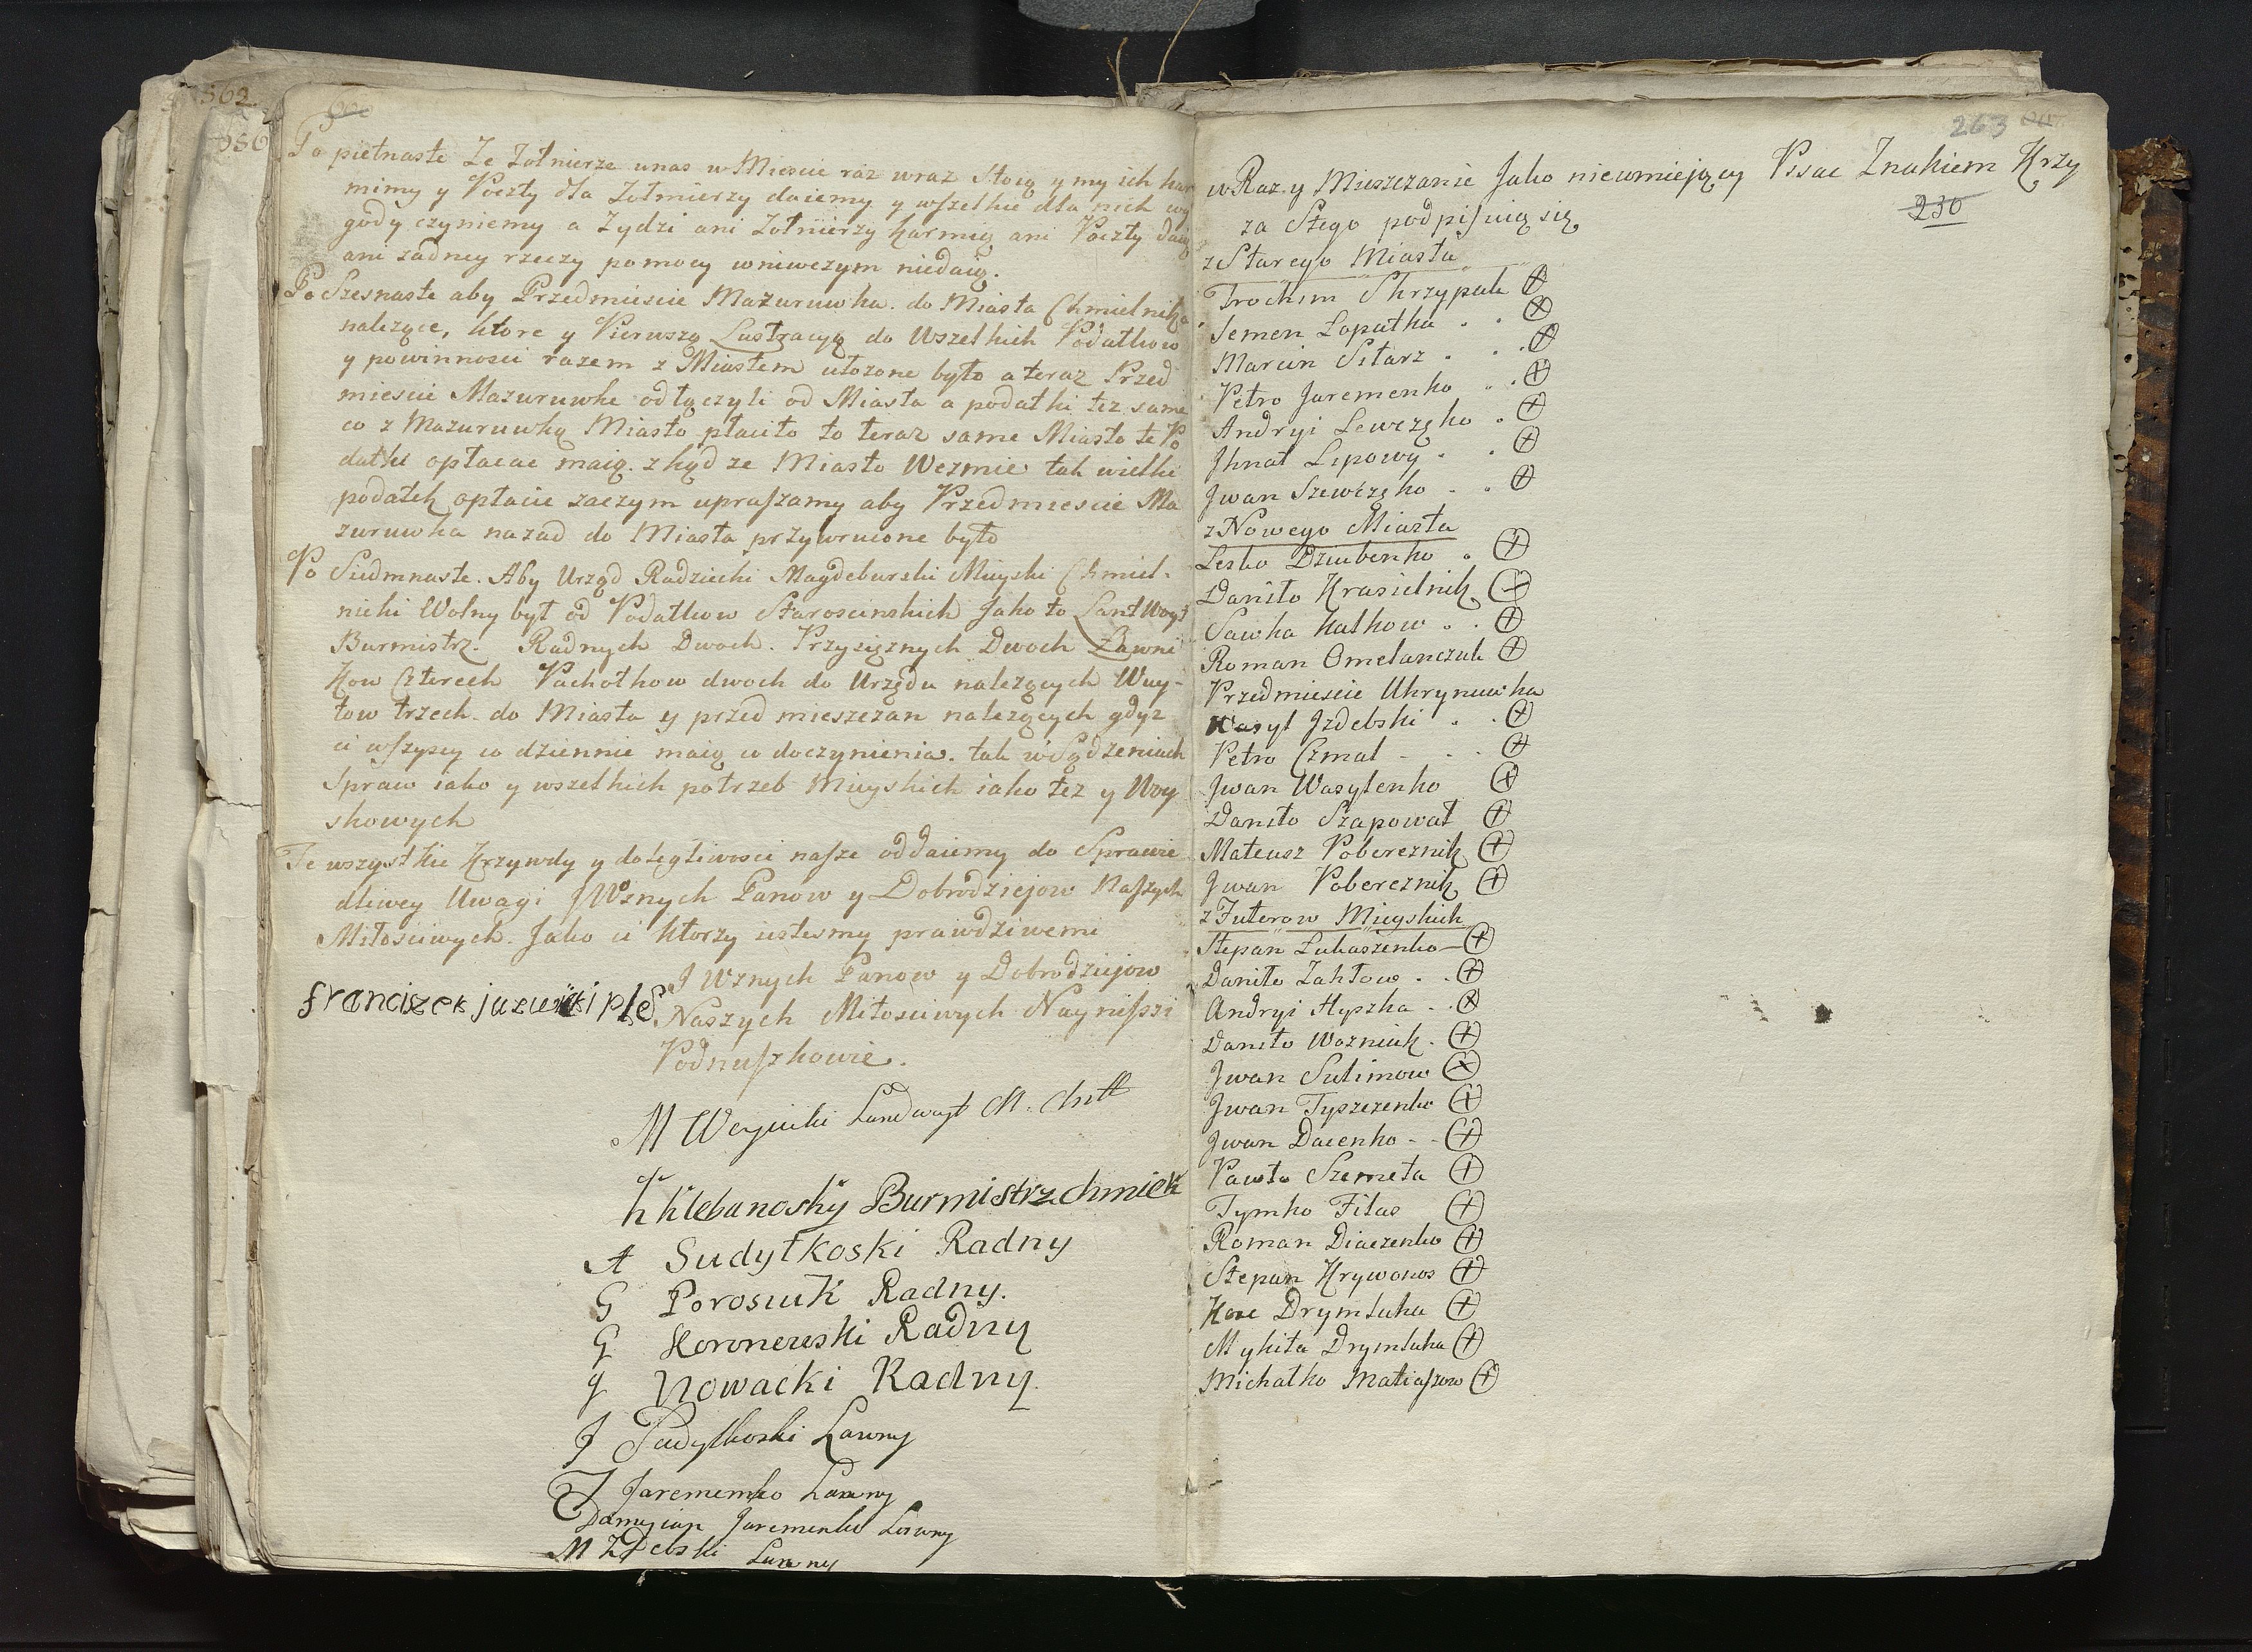 362
Po pietnaste Ze Zołnierze unas w Miescie raz wraz stoią y my ich kar
mimy y Poczty dla Zołmierzy daiemy y wszelkie dla nich wy
gody czyniemy a Zydzi ani Zołnierzy karmią ani Poczty daią
ani zadney rzeczy pomocy wniwczym niedaią.
Po Szesnaste aby Przedmiescie Mazuruwka. do Miasta Chmielnika
nalezące, ktore y Pierwszą Lustracyą do Wszelkich Podatkow
y powinnosci razem z Miastem ułozone było a teraz Przed
miescie Mazuruwke odłączyli od Miasta a podatki tez same
co z Mazuruwką Miasto płaciło to teraz same Miasto te Po
datki opłacac maią. zkąd ze Miasto Wezmie tak wielki
podatek opłacic zaczym upraszamy aby Przedmiescie Ma
zuruwka nazad do Miasta przywrucone było
Po Siedmnaste. Aby Urząd Radziecki Magdeburski Mieyski Chmiel-
nicki Wolny był od Podatkow Staroscinskich Jako to Lantwoyt
Burmistrz. Radnych Dwoch. Przysięznych Dwoch Ławni
kow Czterech Pachołkow dwoch do Urzędu nalezących Wuy-
tow trzech do Miasta y przed mieszczan nalezących gdyz
ci wszyscy co dziennie maią co doczynienia. tak w Sądzeniach
Spraw iako y wszelkich potrzeb Mieyskich iako tez y Woy
skowych
Te wszystkie Krzywdy y dolegliwosci nasze oddaiemy do Sprawie
dliwey Uwagi JWznych Panow y Dobrodziejow Naszych
Miłosciwych. Jako ci ktorzy iestesmy prawdziwemi
J Wznych Panow y Dobrodziejow
Naszych Miłosciwych Nayniszsi
Podnuszkowie.
franciszek
M Woynicki Landwoyt
Klebanosky Burmistrz Chmielk
A Sudyłkoski Radny
G Porosiuk Radny.
G Koronewski Radny
J Nowacki Radny.
J Sudyłkoski Ławny
J Jaremenko Ławny
Damyian Jaremenko Ławny
M Zdebski Ławny
263
w Raz y Mieszczanie Jako nieumiejący Pisac Znakiem Krzy
230
za Stego podpisuią się
z Starego Miasta
Trochim Skrzypak
Semen Łopatka
Marcin Sitarz
Petro Jaremenko
Andryi Lewczęko
Jhnat Lipowy
Jwan Szewczęko
z Nowego Miasta
Lesko Dziubenko
Daniło Krasielnik
Sawka Kałkow
Roman Omelanczuk
Przedmiescie Uhrynuwka
Wasyl Jzdebski
Petro Czmal
Jwan Wasylenko
Daniło Szapował
Mateusz Pobereznik
Jwan Pobereznik
z Futorow Mieyskich
Stepan Łukaszenko
Daniło Zakłow
Andryi Hyszka
Daniło Wozniuk
Jwan Sulimow
Jwan Tyszczenko
Jwan Dacenko
Pawło Szemeta
Tymko Fitas
Roman Diaczenko
Stepan Krywonos
Drymłuha
Mykita Drymłuha
Michałko Matiaszow